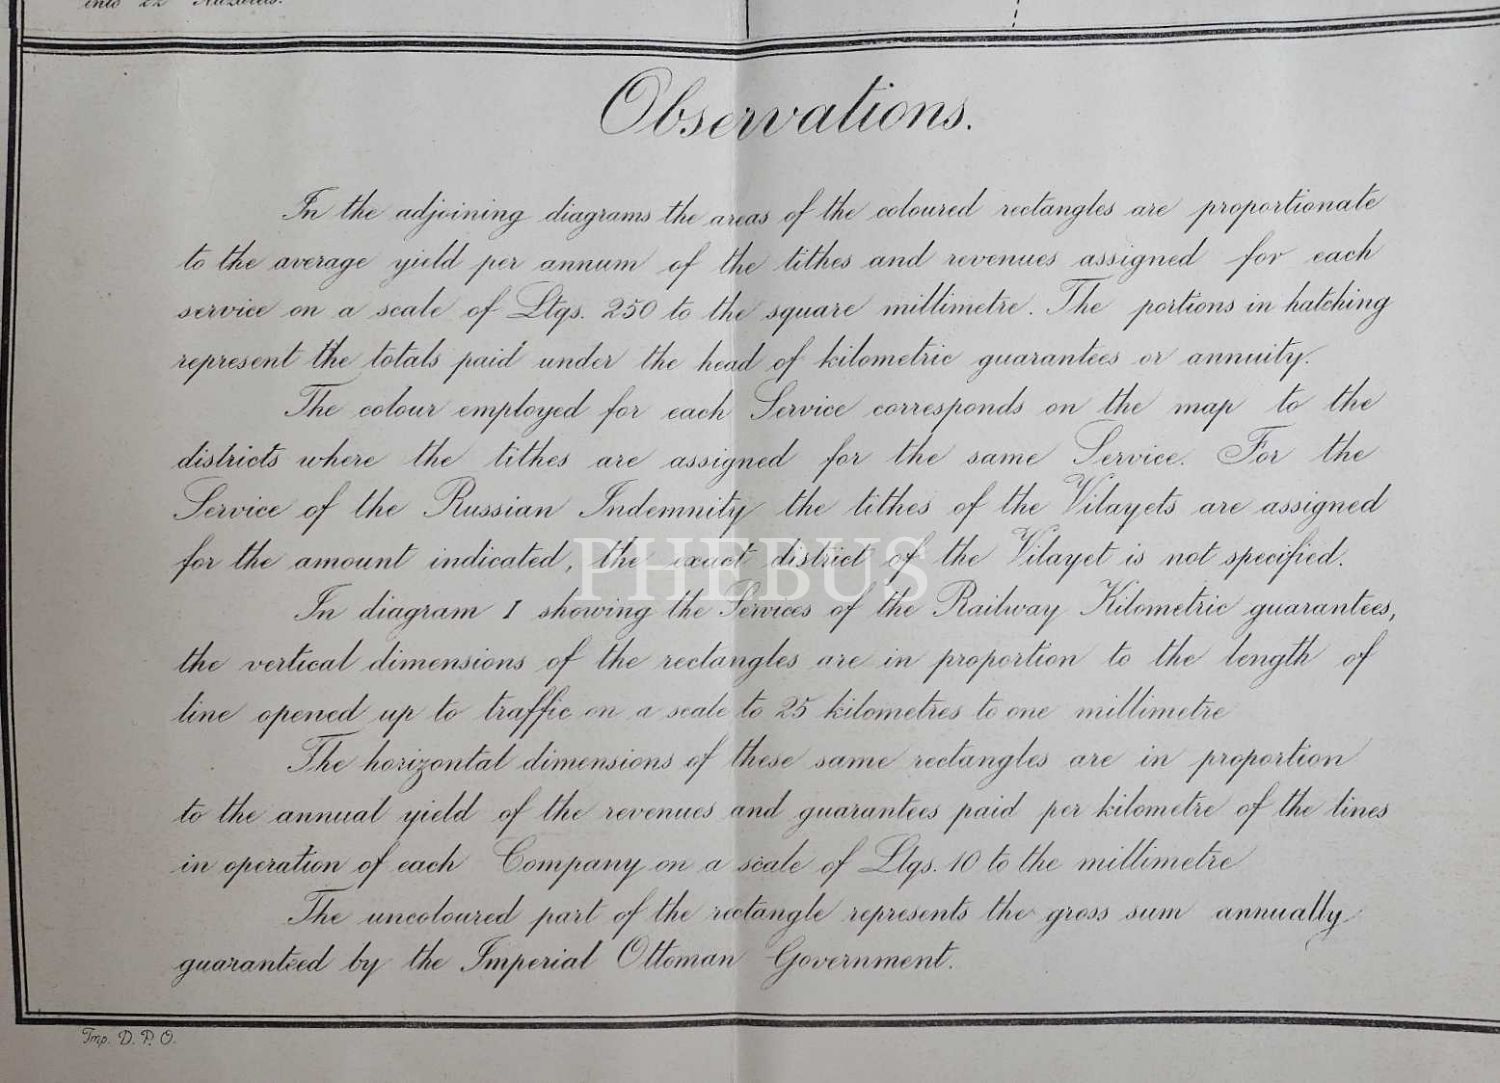 into 22 Nazarets.
Observations.
In the adjoining diagrams the areas of the coloured rectangles are proportionate
to the average yield per annum of the tithes and revenues assigned for each
service on a scale of Ltqs. 250 to the square millimetre. The portions in hatching
represent the totals paid under the head of kilometric guarantees or annuity.
The colour employed for each Service corresponds on the map to the
districts where the tithes are assigned for the same Service. For the
Service of the Russian Indemnity the tithes of the Vilayets are assigned
for the amount indicated, the exact district of the Vilayet is not specified.
PHEBUS
In diagram I showing the Services of the Railway Kilometric guarantees,
the vertical dimensions of the rectangles are in proportion to the length of
line opened up to traffic on a scale to 25 kilometres to one millimetre
The horizontal dimensions of these same rectangles are in proportion
to the annual yield of the revenues and guarantees paid per kilometre of the lines
in operation of each Company on a scale of Ltqs. 10 to the millimetre
The uncoloured part of the rectangle represents the gross sum annually
guaranteed by the Imperial Ottoman Government.
Imp. D. P. O.